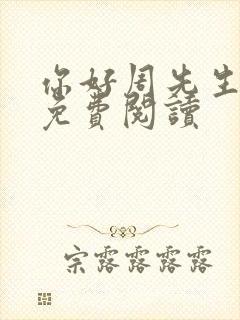 你好周先生
免費閱讀
宗露露露露